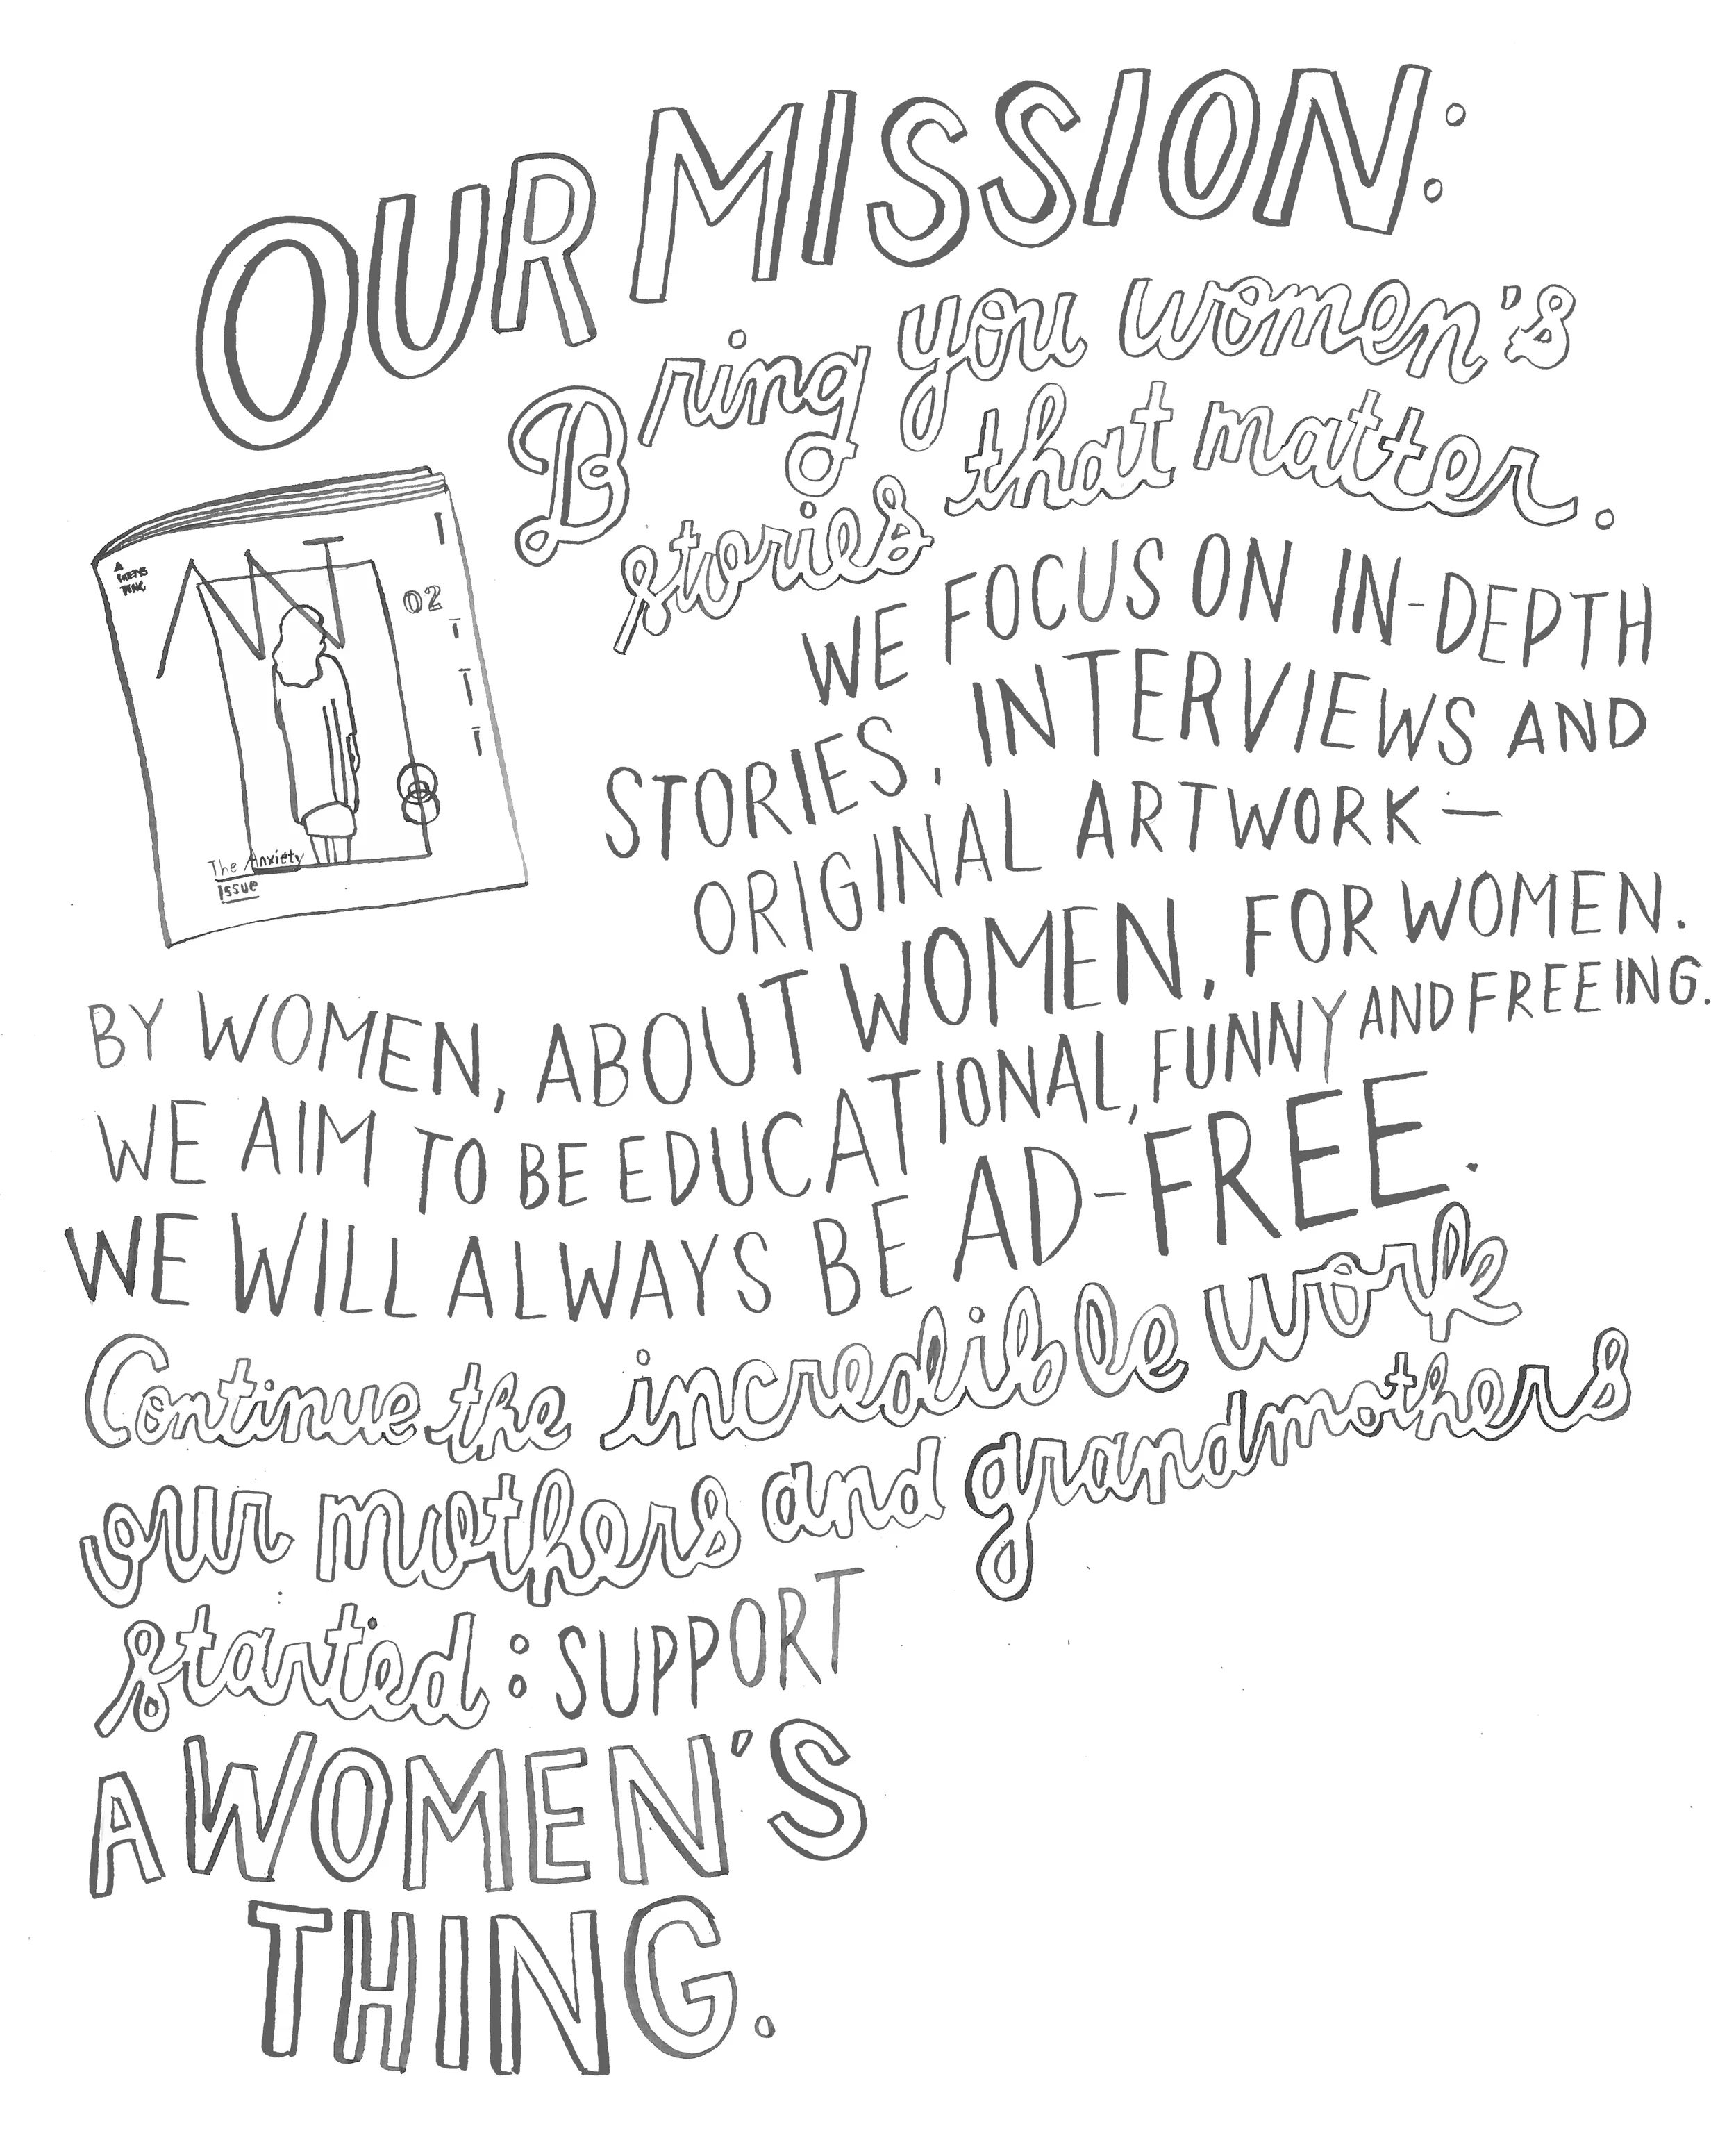 OUR MISSION:
Bring you women's
stories that matter.
WE FOCUS ON IN-DEPTH
STORIES, INTERVIEWS AND
ORIGINAL ARTWORK—
BY WOMEN, ABOUT WOMEN, FOR WOMEN.
WE AIM TO BE EDUCATIONAL, FUNNY AND FREEING.
WE WILL ALWAYS BE AD-FREE.
Continue the incredible work
our mothers and grandmothers
started: SUPPORT
A WOMEN'S
THING.
A
THING
02
The Anxiety
Issue